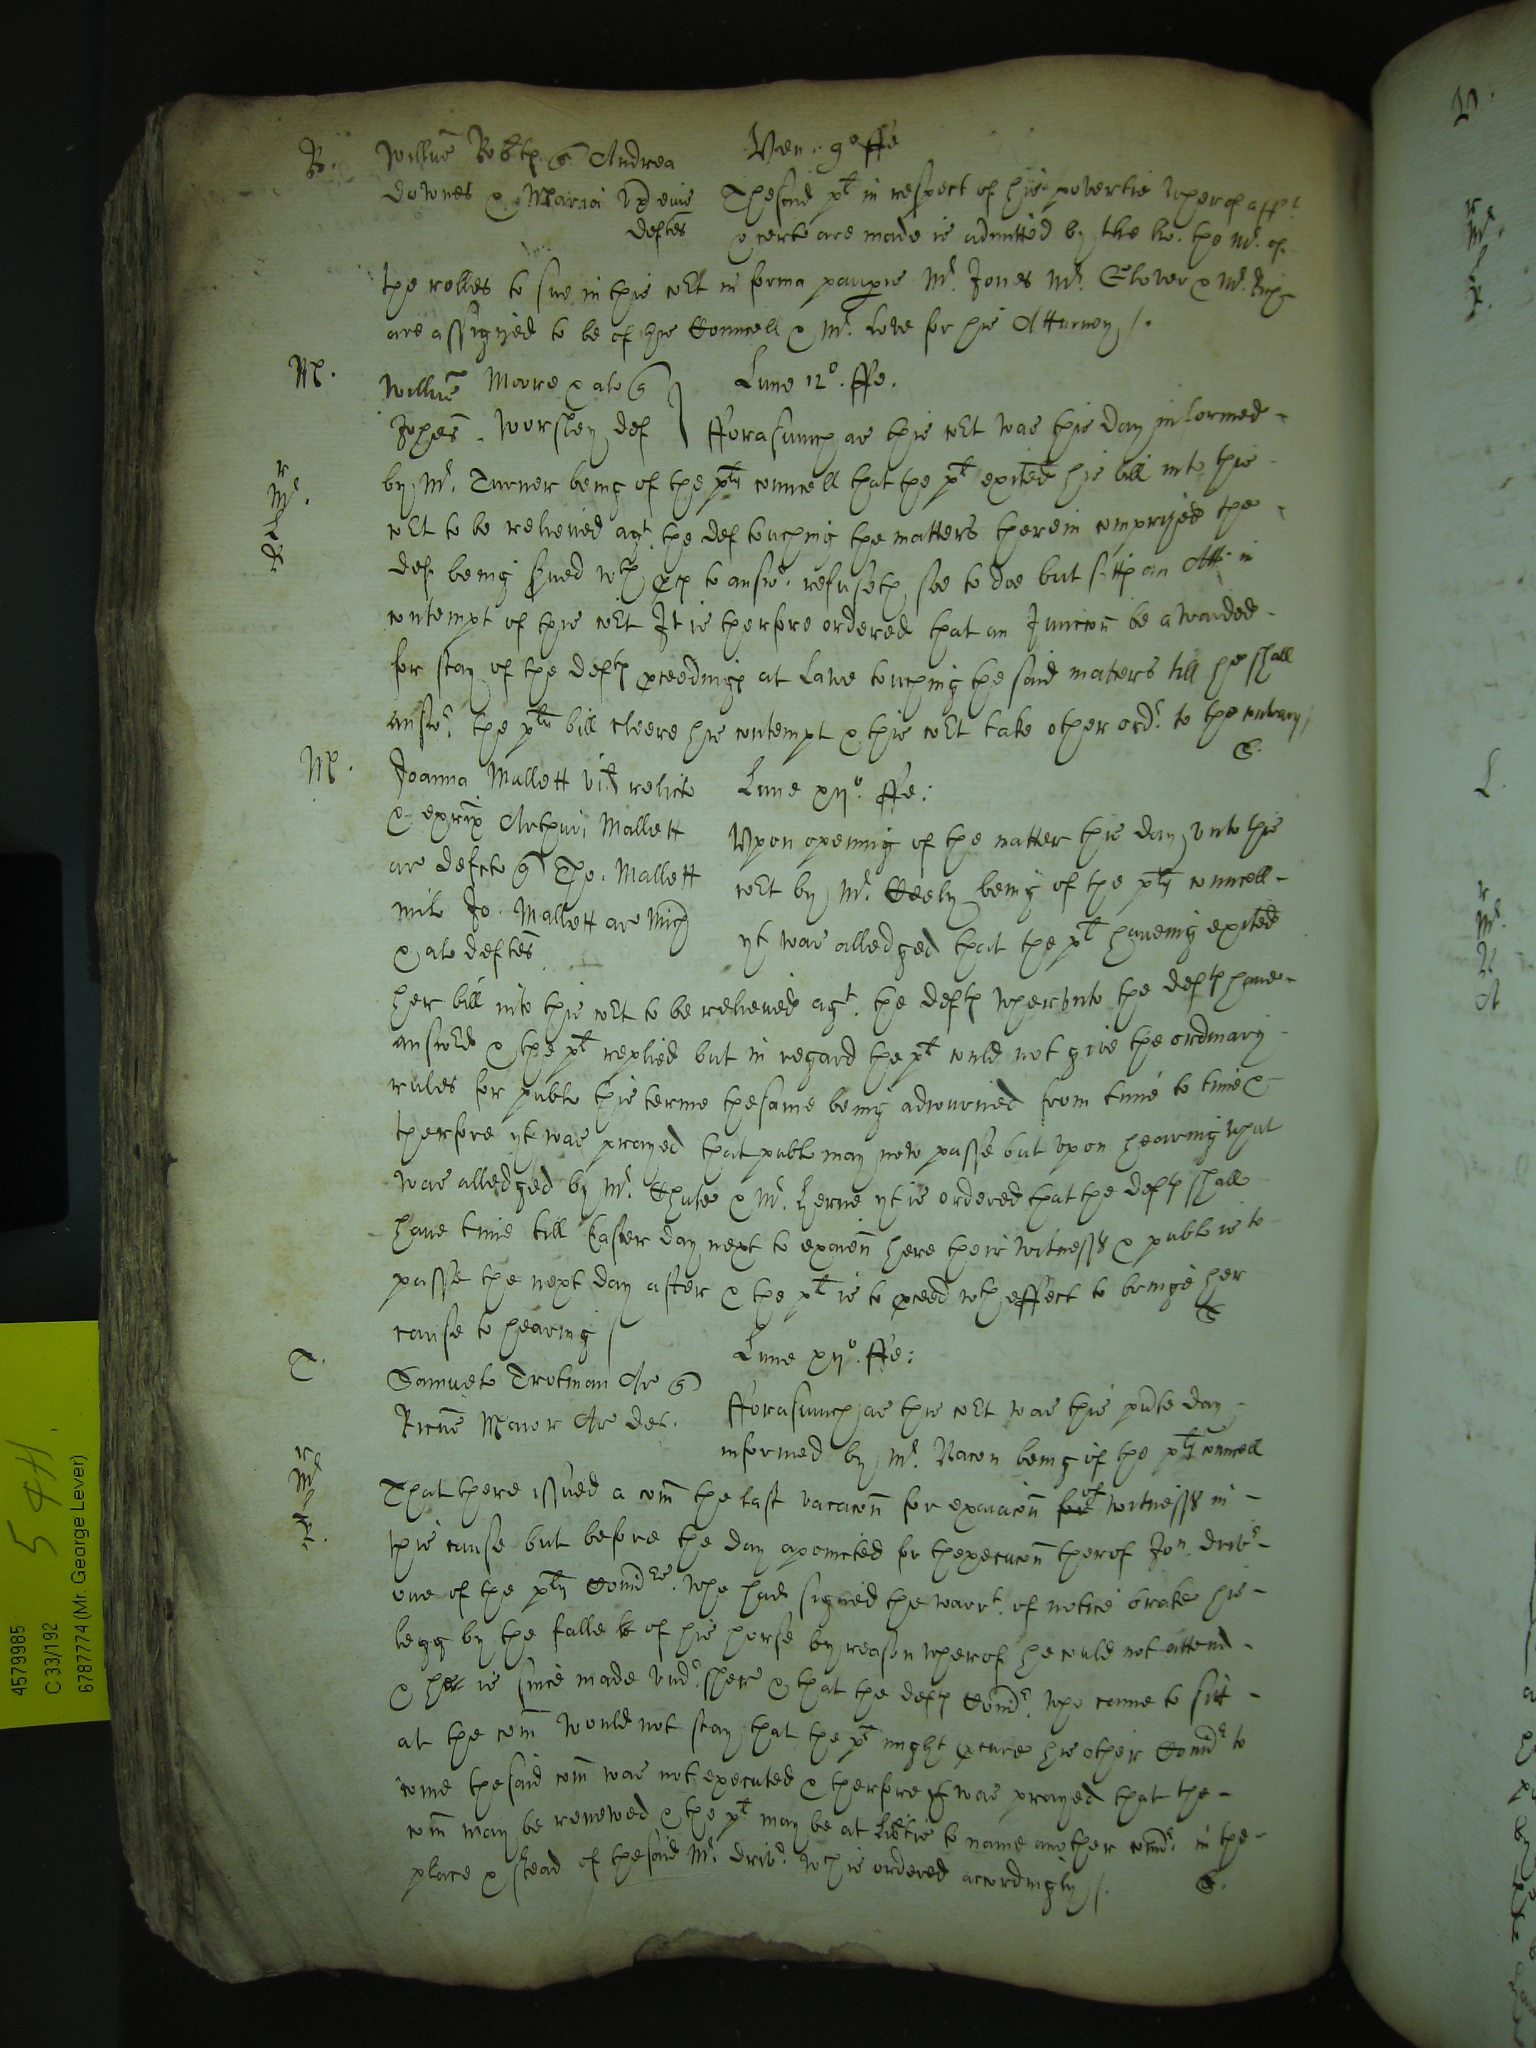 R. Willm̃ Robtę ꝗ Andrea
Ven. 9º ffe
Downes & Maria vx eius
defteš
The said plt in respect of his povertie wherof afft
& certe are made is admitted by the ho. the Mr. of
the rolles to sue in this coℓt in forma paupie Mr. Jones Mr. Glover & Mr. King
are assigned to be of his Councell & Mr. Love for his Atturney /.
M. Willm̃ Moore & als ꝗ
Lune 12º. ffe.
Johes . Worsley def
fforasmuch as this coℓt was this day informed
by Mr. Turner being of the pltę councell that the plt exited his bill into this
coℓt to be relieved agt. the def touching the matters therein comprised the
def. being served wth pcę to answr. refuseth soe to doe but sitts an Att in
contempt of this coℓt It is therfore ordered that an Iniuccõn be awarded
for stay of the deftę pceedingę at Lawe touching the said matters till he shall
answr. the pltę bill cleere his contempt & this coℓt take other ordr. to the contrary /
r
Mr.
L
R
M. Joanna Mallett vid relicte
Lune xijº. ffe:
& exrix Arthuri Mallett
ar defcto ꝗ Tho. Mallett
milo Jo. Mallett ar Mich
& als defteš
Vpon opening of the matter this day vnto this
coℓt by Mr. Keely being of the pltę councell
yt was alledged that the plt haueing exited
her bill into this coℓt to be relieued agt. the deftę wherunto the deftę haue
answℓd & the plt replied but in regard the plt could not give the ordinary
rules for publc this terme the same being adiourned from time to time &
therfore yt was prayed that publc may now passe but vpon hearing what
was alledged by Mr. Chute & Mr. Herne yt is ordered that the deftę shall
have time till Easter day next to examĩn here their witnesss & publc is to
passe the next day after & the plt is to pceed wth effect to bringe her
cause to hearing /
T. Samuelo Trotman Ar ꝗ
Lune xijº. ffe:
Ricus Maior Ar def.
fforasmuch as this coℓt was this pñte day
informed by Mr. Bacon being of the pltę councell
r
Mr
L
R.
That there issued a com̃ the last vacacõn for examĩacõn for of witnesss in
this cause but before the day apointed for thexecucõn therof Jon. Drivr
one of the pltę Com̃rs. who had signed the warrt. of notice brake his
legg by the falle of his horse by reason wherof he could not attend
& he is since made vndr. sher & that the deftę Com̃r. who came to sitt
at the com̃ would not stay that the plt might pcure his other Com̃r to
come the said com̃ was not executed & therfore yt was prayed that the
com̃ may be renewed & the plt may be at Libtie to name another com̃r. in the
place & stead of the said Mr. Drivr. wch is ordered accordingly /.
5 4H.
4579985
C 33/192
6787774 (Mr. George Lever)